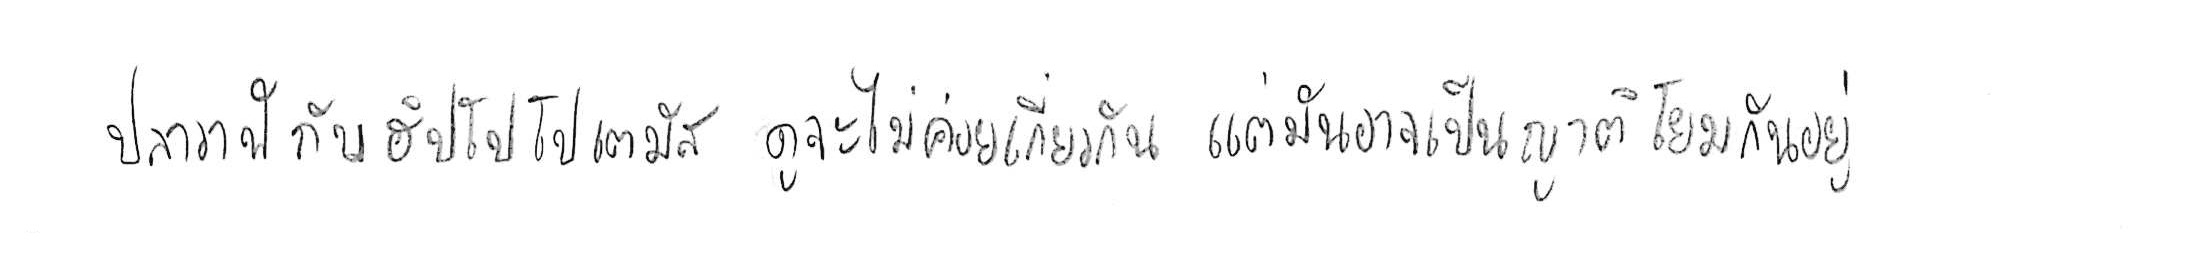 ปลาวาฬกับฮิปโปโปเตมัส ดูจะไม่ค่อยเกี่ยวกัน แต่มันอาจเป็นญาติโยมกันอยู่